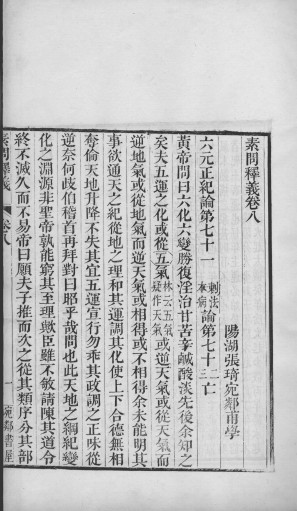 素問釋義卷八
陽湖張琦宛鄰甫學
六元正紀論第七十一 刺法論第七十二亡 本病
黃帝問曰六化六變勝復淫治甘苦辛鹹酸淡先後余知之
矣夫五運之化或從五氣林云五氣疑作天氣或逆天氣或從天氣而
逆地氣或從地氣而逆天氣或相得或不相得余未能明其
事欲通天之紀從地之理和其運調其化使上下合德無相
奪倫天地升降不失其宜五運宣行勿乖其政調之正味從
逆奈何歧伯稽首再拜對曰昭乎哉問也此天地之綱紀變
化之淵源非聖帝孰能窮其至理歟臣雖不敏請陳其道令
終不滅久而不易帝曰願夫子推而次之從其類序分其部
素問釋義 卷八 一 宛鄰書屋